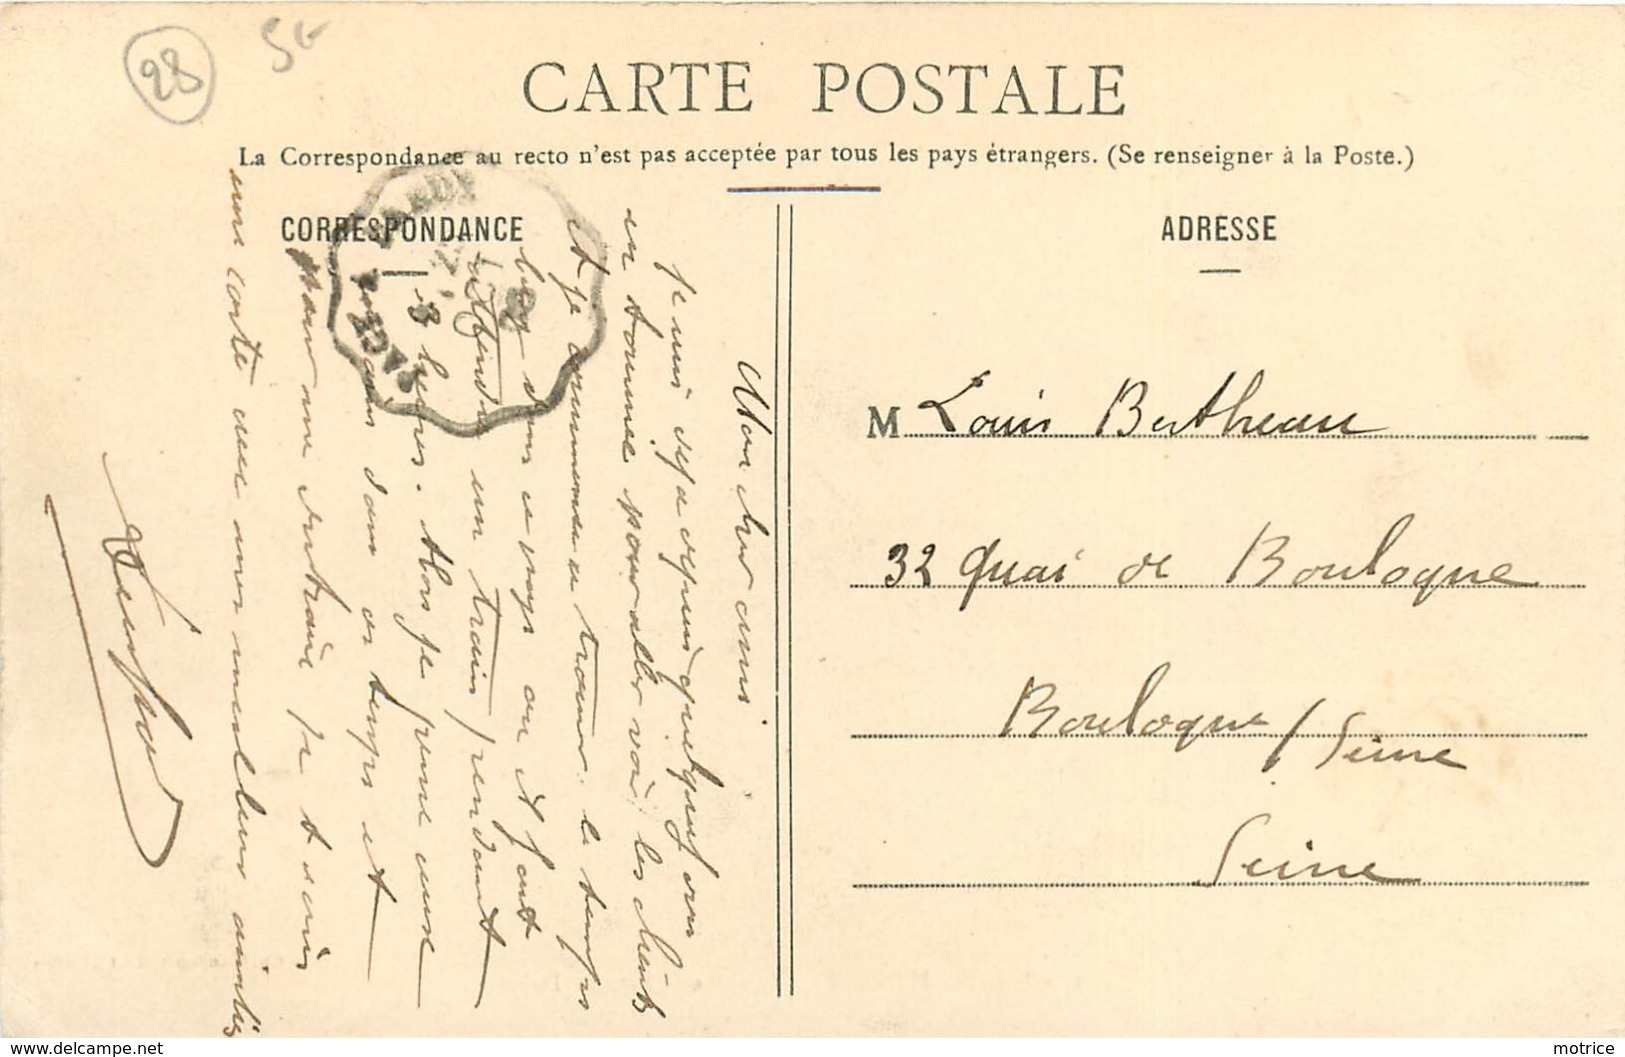 28
CARTE POSTALE
La Correspondance au recto n'est pas acceptée par tous les pays étrangers. (Se renseigner à la Poste.)
CORRESPONDANCE
Mon cher ami
je suis déjà depuis quelques jours
en tournée pour aller voir les clients
et je commence a trouver le temps
long dans ce pays où il faut
attendre un train pendant
3 heures. Alors je prens une
dans ce temps et
me distraire je t'écris
une carte avec mes meilleurs amitiés
ADRESSE
M Louis Bertheau
32 Quai de Boulogne
Boulogne / Seine
Seine
delcampe.net
motrice